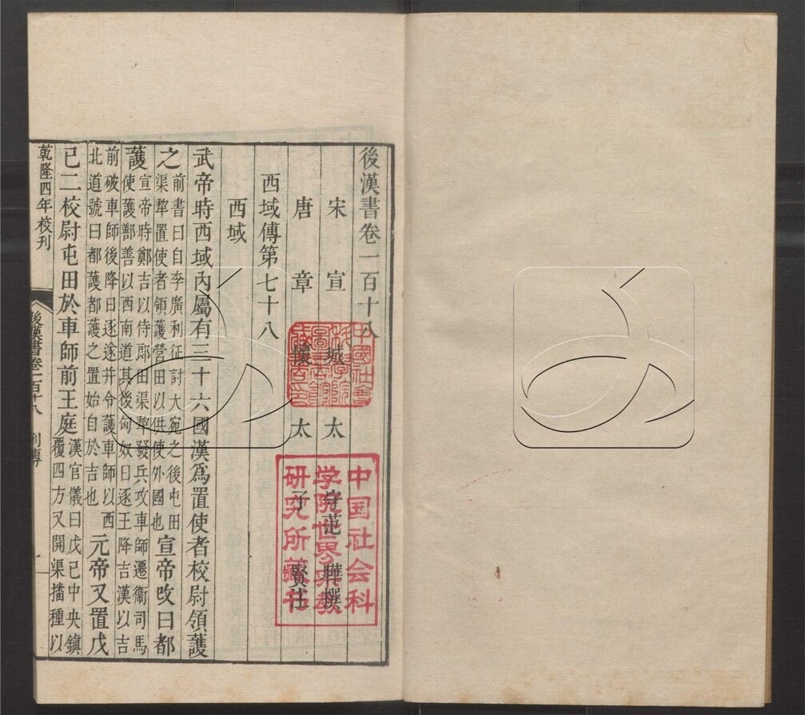 後漢書卷一百十八
宋宣城太守范曄撰
唐章懷太子賢注
西域傳第七十八
西域
武帝時西域內屬有三十六國漢爲置使者校尉領護
之前書曰自李廣利征討大宛之後屯田渠犂置使者領護營田以供使外國也宣帝改曰都
護宣帝時鄭吉以侍郞田渠犂發兵攻車師遷衞司馬使護鄯善以西南道其後匈奴日逐王降吉漢以吉
前破車師後降日逐遂并令護車師以西北道號曰都護都護之置始自於吉也元帝又置戊
己二校尉屯田於車師前王庭漢官儀曰戊己中央鎭覆四方又開渠播種以
乾隆四年校刊
後漢書卷一百十八 列傳 一
中國社會科學院
圖書館
中国社会科
学院世界宗教
研究所藏书